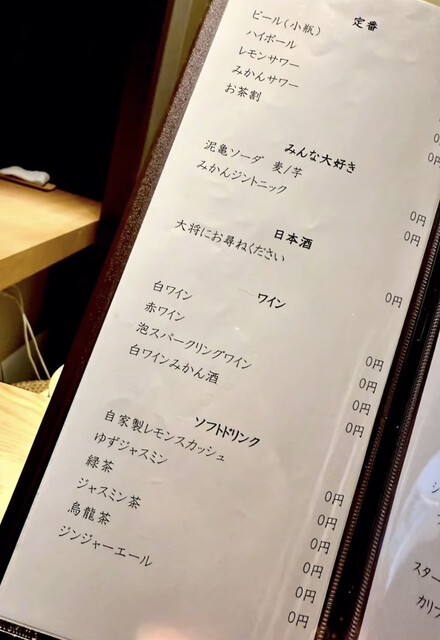 定番
ビール(小瓶)
ハイボール
レモンサワー
みかんサワー
お茶割
みんな大好き
泥亀ソーダ 麦/芋 0円
みかんジントニック 0円
日本酒
大将にお尋ねください 0円
ワイン
白ワイン 0円
赤ワイン 0円
泡スパークリングワイン 0円
白ワインみかん酒 0円
ソフトドリンク
自家製レモンスカッシュ 0円
ゆずジャスミン 0円
緑茶 0円
ジャスミン茶 0円
烏龍茶 0円
ジンジャーエール 0円
スター
カリフ